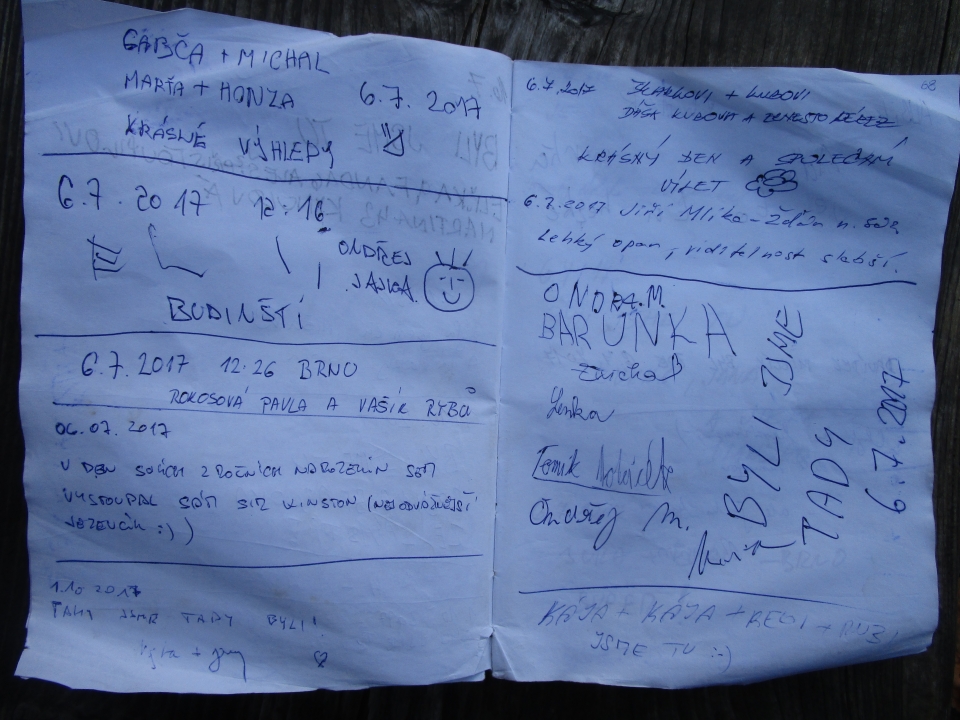 GÁBČA + MICHAL
MARŤA + HONZA 6.7. 2017
KRÁSNÉ VÝHLEDY
6.7. 2017 12:16
ONDŘEJ
BUDINŠTÍ
6.7.2017 12:26 BRNO
ROKOSOVÁ PAVLA A VAŠÍK RYBŮ
06.07.2017
V DEN SVÝCH 2 ROČNÍCH NAROZENIN SEM
VYSTOUPAL SÁM SIR WINSTON (NEJODVÁŽNĚJŠÍ
JEZEVČÍK :) )
1.10 2017
TAKY JSME TADY BYLI!
68
6.7.2017 + KUBOVI
DÁŠA KUBOVA
KRÁSNÝ DEN A SPOLEČNÝ
VÝLET
6.7.2017 Jiří Mlika - Žďár n. Sáz.
Lehký opar, viditelnost slabší.
ONDRA.M.
BARUNKA
Lenka
Tomík
Ondřej M.
BYLI JSME
TADY
6.7.2017
KÁJA + KÁJA +
JSME TU :-)